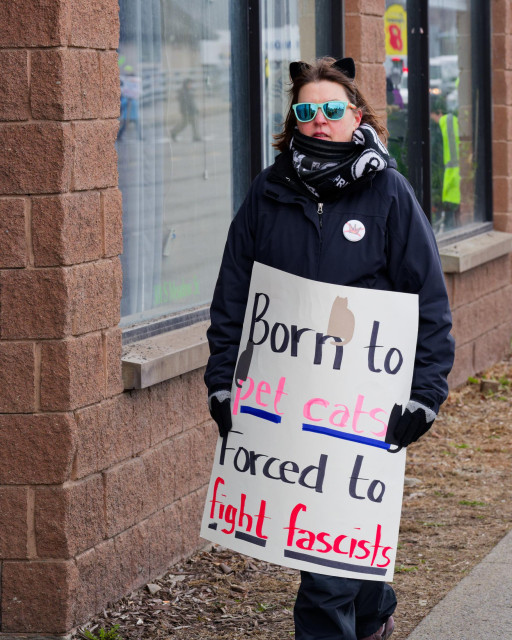 Born to
pet cats
Forced to
fight fascists